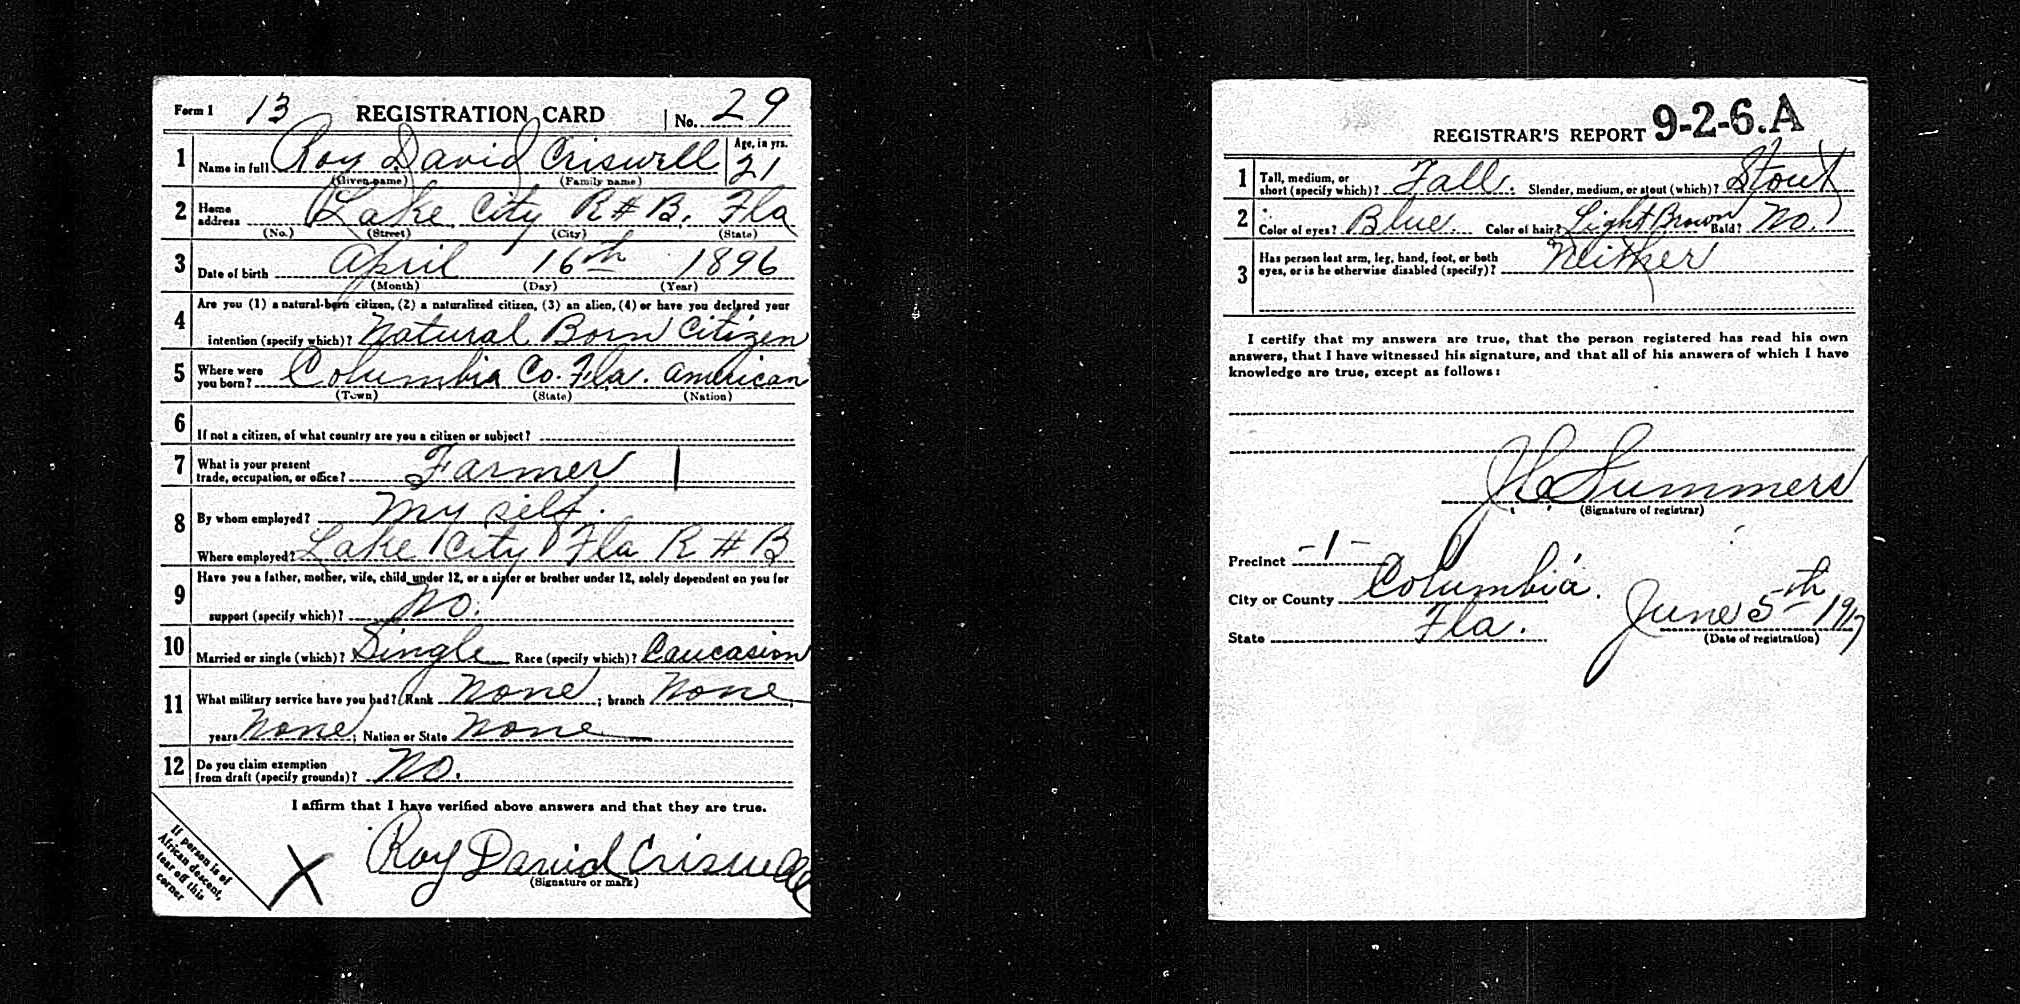 Form 1 13 REGISTRATION CARD No. 29
1 Name in full Roy David Criswell Age, in yrs. 21
(Given name) (Family name)
2 Home address Lake City R#B. Fla
(No.) (Street) (City) (State)
3 Date of birth April 16th 1896
(Month) (Day) (Year)
4 Are you (1) a natural-born citizen, (2) a naturalized citizen, (3) an alien, (4) or have you declared your
intention (specify which)? Natural Born Citizen
5 Where were you born? Columbia Co. Fla. american
(Town) (State) (Nation)
6 If not a citizen, of what country are you a citizen or subject?
7 What is your present trade, occupation, or office? Farmer 1
8 By whom employed? My self.
Where employed? Lake City Fla R#B
9 Have you a father, mother, wife, child under 12, or a sister or brother under 12, solely dependent on you for
support (specify which)? No.
10 Married or single (which)? Single Race (specify which)? Caucasion
11 What military service have you had? Rank None ; branch None ;
years None ; Nation or State None
12 Do you claim exemption from draft (specify grounds)? No.
I affirm that I have verified above answers and that they are true.
X Roy David Criswell
(Signature or mark)
If person is of
African descent,
tear off this
corner
REGISTRAR'S REPORT 9-2-6.A
1 Tall, medium, or short (specify which)? Tall. Slender, medium, or stout (which)? Stout
2 Color of eyes? Blue. Color of hair? Light Brown Bald? No.
3 Has person lost arm, leg, hand, foot, or both eyes, or is he otherwise disabled (specify)? Neither
I certify that my answers are true, that the person registered has read his own
answers, that I have witnessed his signature, and that all of his answers of which I have
knowledge are true, except as follows:
Summers
(Signature of registrar)
Precinct -1-
City or County Columbia.
State Fla. June 5th 1917
(Date of registration)